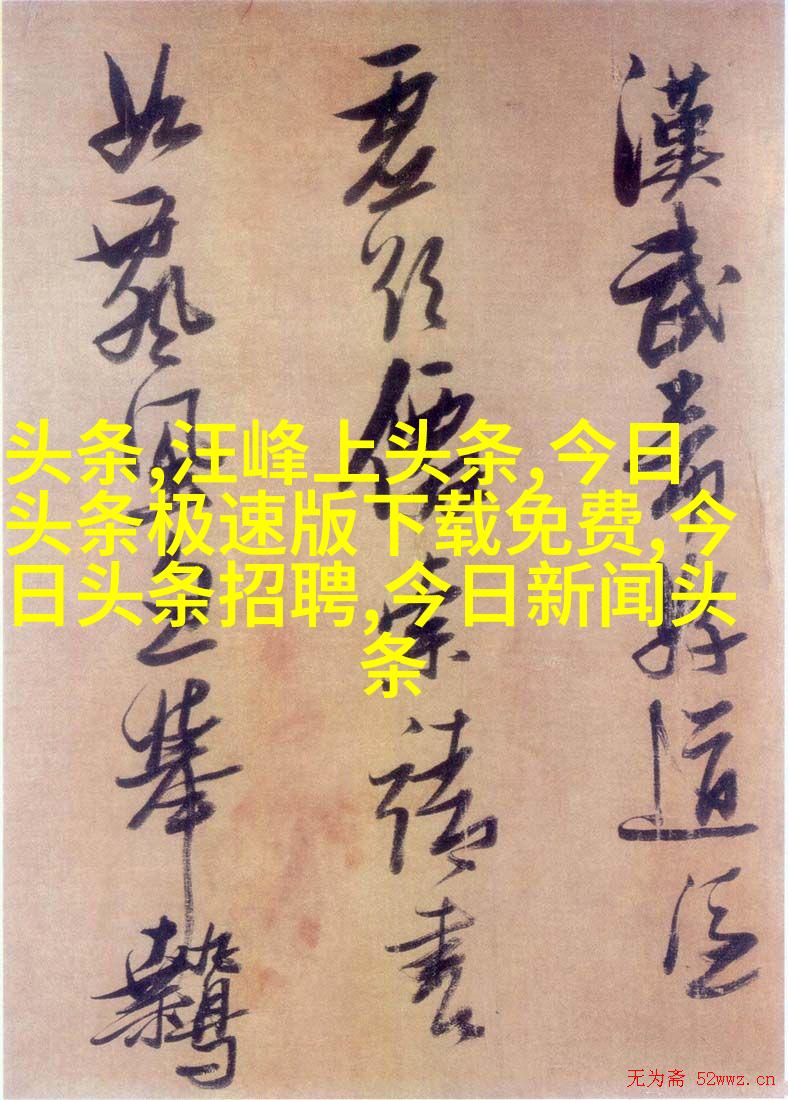 漢武帝好道
價索請書
如風舉
头条,汪峰上头条,今日
头条极速版下载免费,今
日头条招聘,今日新闻头
条
无为斋 52wwz.cn